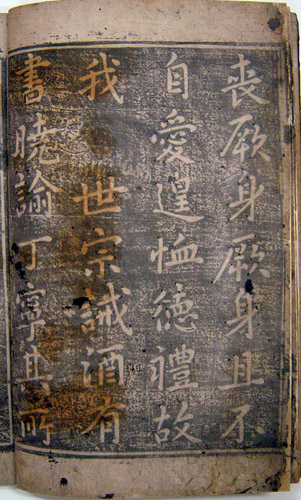 喪厥身厥身且不
自愛遑恤德禮故
我 世宗誡酒有
書曉諭丁寧其所